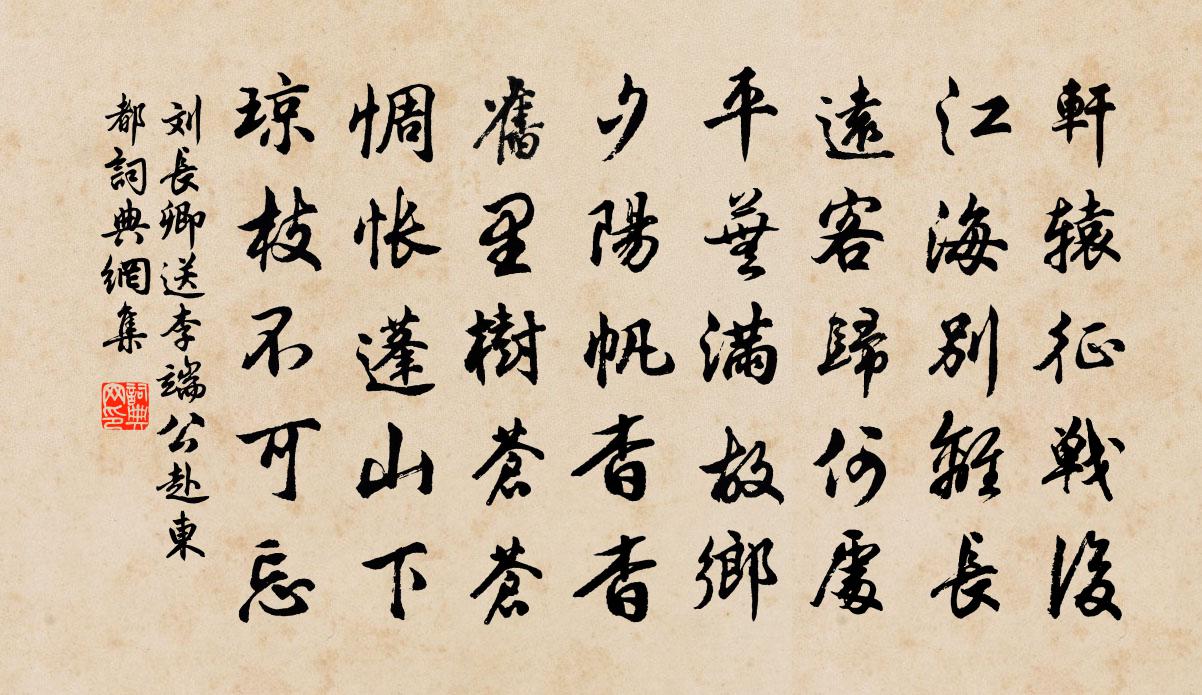 軒辕征戦後
江海別離長
遠客歸何處
平蕪滿故鄉
夕陽帆杳杳
舊里樹蒼蒼
惆怅蓬山下
琼枝不可忘
刘長卿送李端公赴東
都詞典網集
詞典
网印